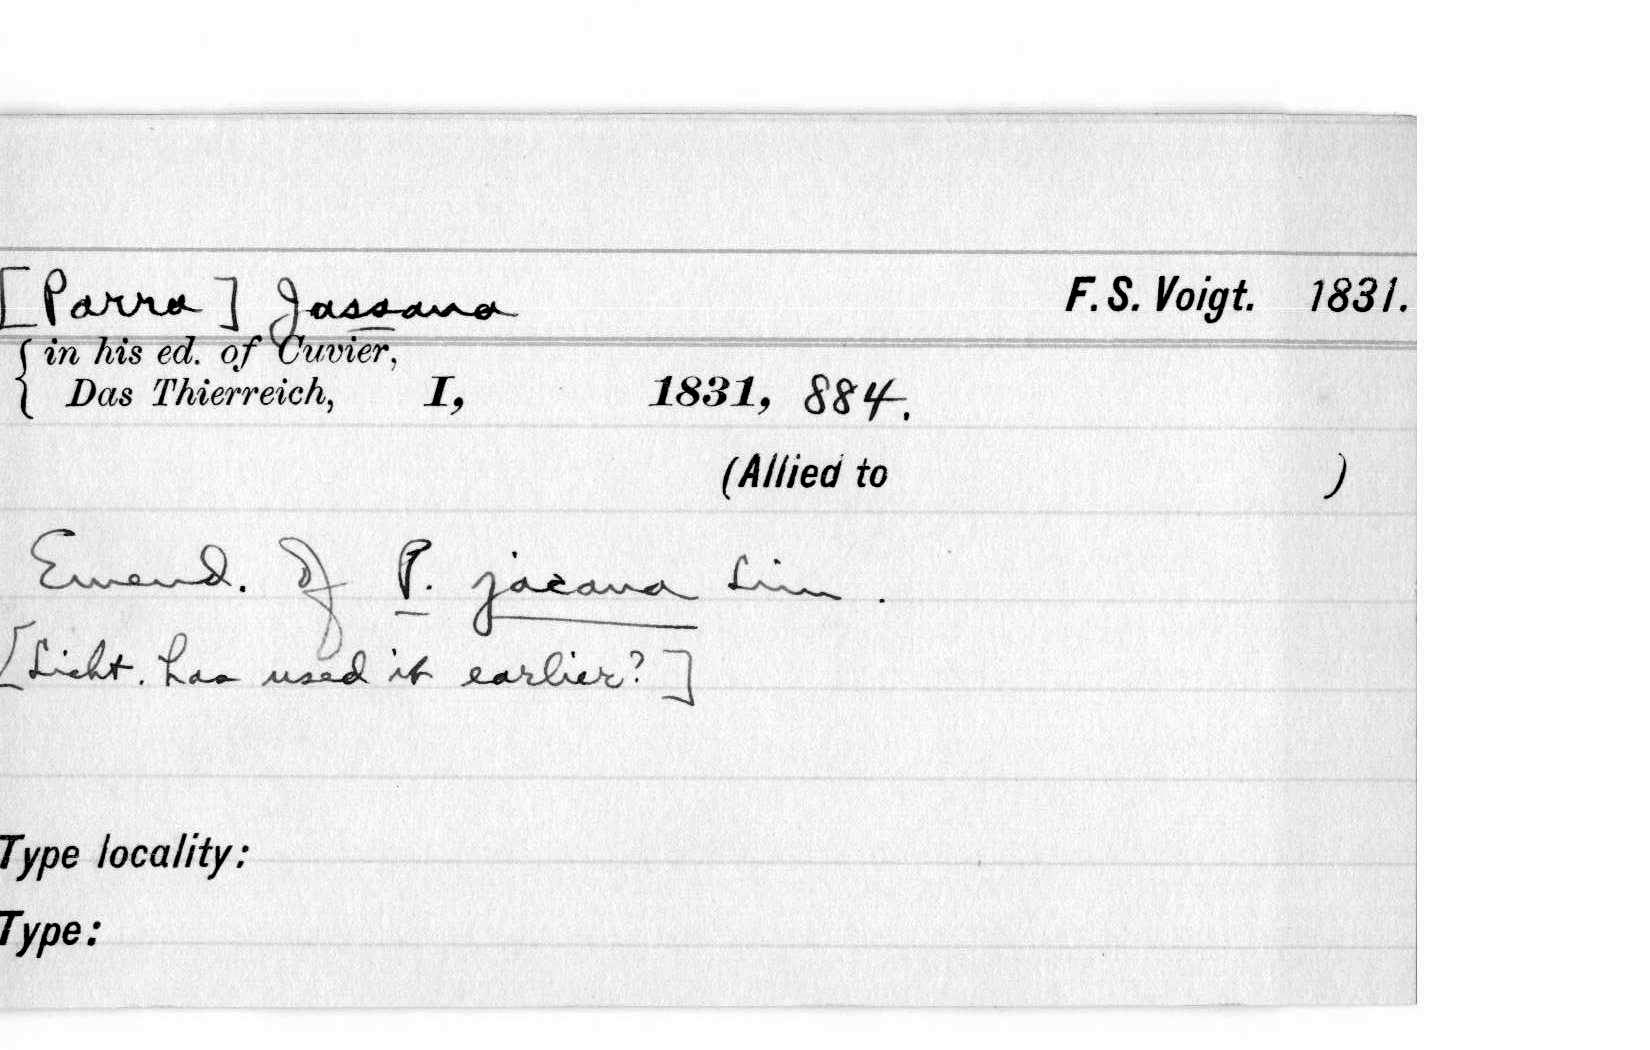 [Parra] Jassana F. S. Voigt. 1831.
in his ed. of Cuvier,
Das Thierreich, I, 1831, 884.
(Allied to )
Emend. of P. jacana Lin.
[Licht. has used it earlier?]
Type locality:
Type: